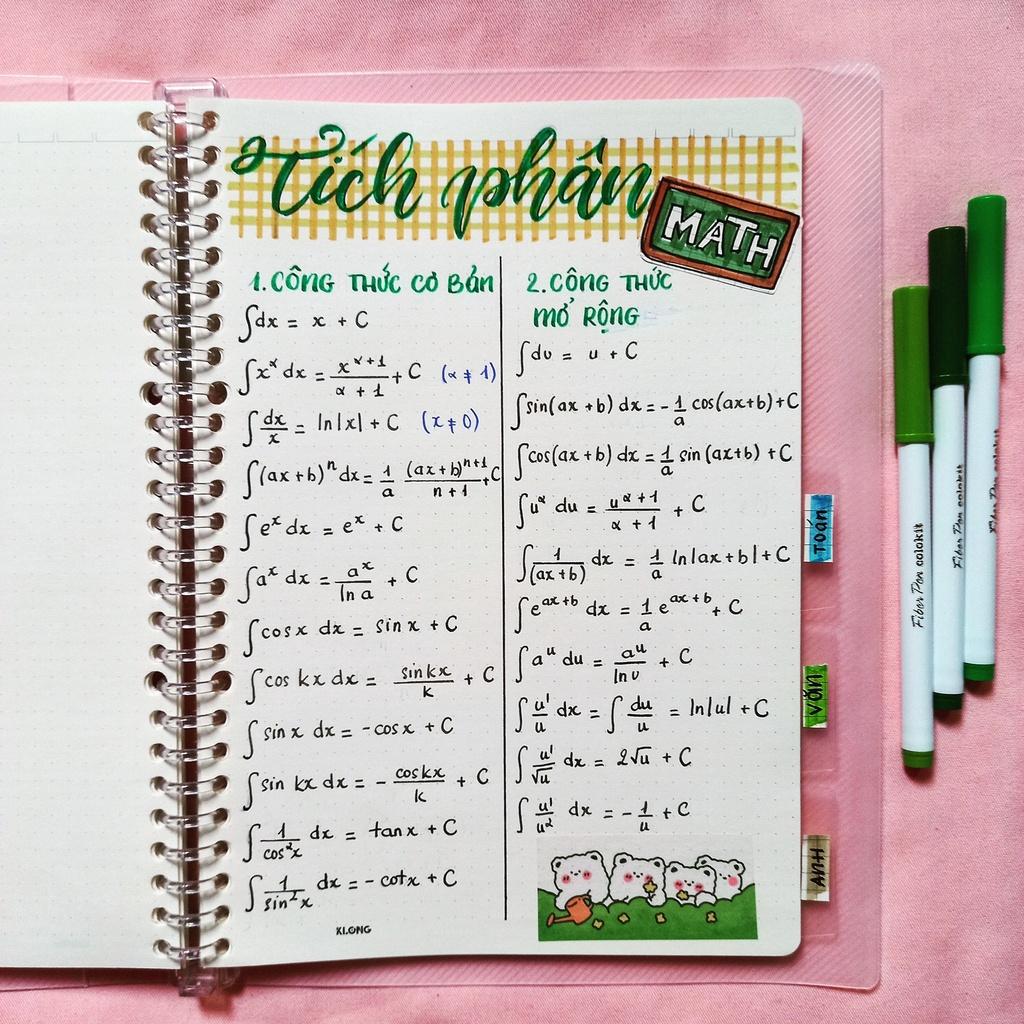 Tích phân
MATH
1. CÔNG THỨC CƠ BẢN
∫dx = x + C
∫x^α dx = x^(α+1)/(α+1) + C (α ≠ 1)
∫dx/x = ln|x| + C (x ≠ 0)
∫(ax+b)^n dx = 1/a (ax+b)^(n+1)/(n+1) + C
∫e^x dx = e^x + C
∫a^x dx = a^x/(ln a) + C
∫cosx dx = sinx + C
∫cos kx dx = sinkx/k + C
∫sinx dx = -cosx + C
∫sin kx dx = - coskx/k + C
∫1/(cos²x) dx = tanx + C
∫1/(sin²x) dx = -cotx + C
KLONG
2. CÔNG THỨC
MỞ RỘNG
∫du = u + C
∫sin(ax+b) dx = - 1/a cos(ax+b) + C
∫cos(ax+b) dx = 1/a sin(ax+b) + C
∫u^α du = u^(α+1)/(α+1) + C
∫1/(ax+b) dx = 1/a ln|ax+b| + C
∫e^(ax+b) dx = 1/a e^(ax+b) + C
∫a^u du = a^u/(ln u) + C
∫u'/u dx = ∫du/u = ln|u| + C
∫u'/√u dx = 2√u + C
∫u'/u² dx = - 1/u + C
TOÁN
VĂN
ANH
Fiber Pen colokit
Fiber Pen colokit
Fiber Pen colokit